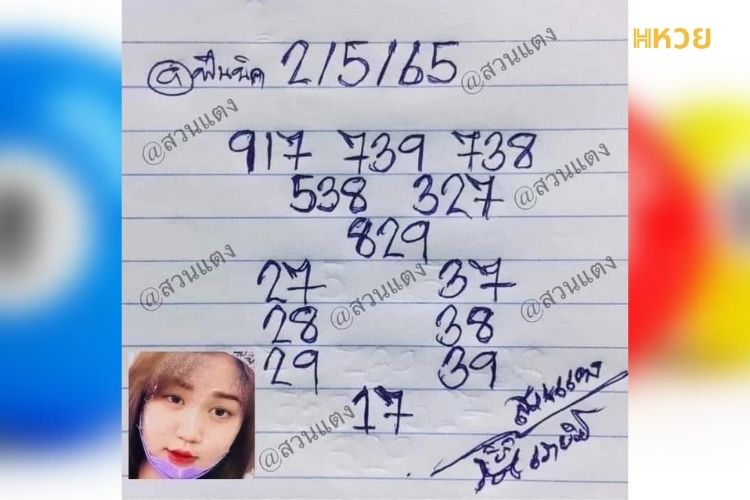 Hหวย
ฟินนิค 2/5/65
@สวนแตง
@สวนแตง
917 739 738
538 327
@สวนแตง
829
27 37
@สวนแตง
@สวนแตง
@สวนแตง
28 38
29 39
17
@สวนแตง
สวนแตง